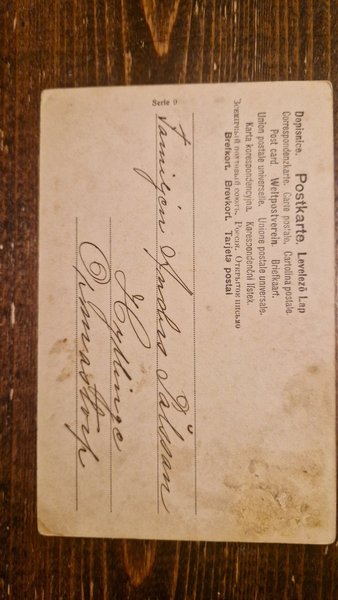 Dopisnice. Postkarte. Levelező Lap
Correspondenzkarte. Carte postale. Cartolina postale.
Post card. Weltpostverein. Briefkaart.
Union postale universelle. Unione postale universale.
Karta korespondencyjna. Korespondenční lístek.
Всемірный почтовый союзъ. Россія. Открытое письмо
Brefkort. Brevkort. Tarjeta postal
Serie 9
Familjen Anders Pålsson
Hyllinge
Ormastorp